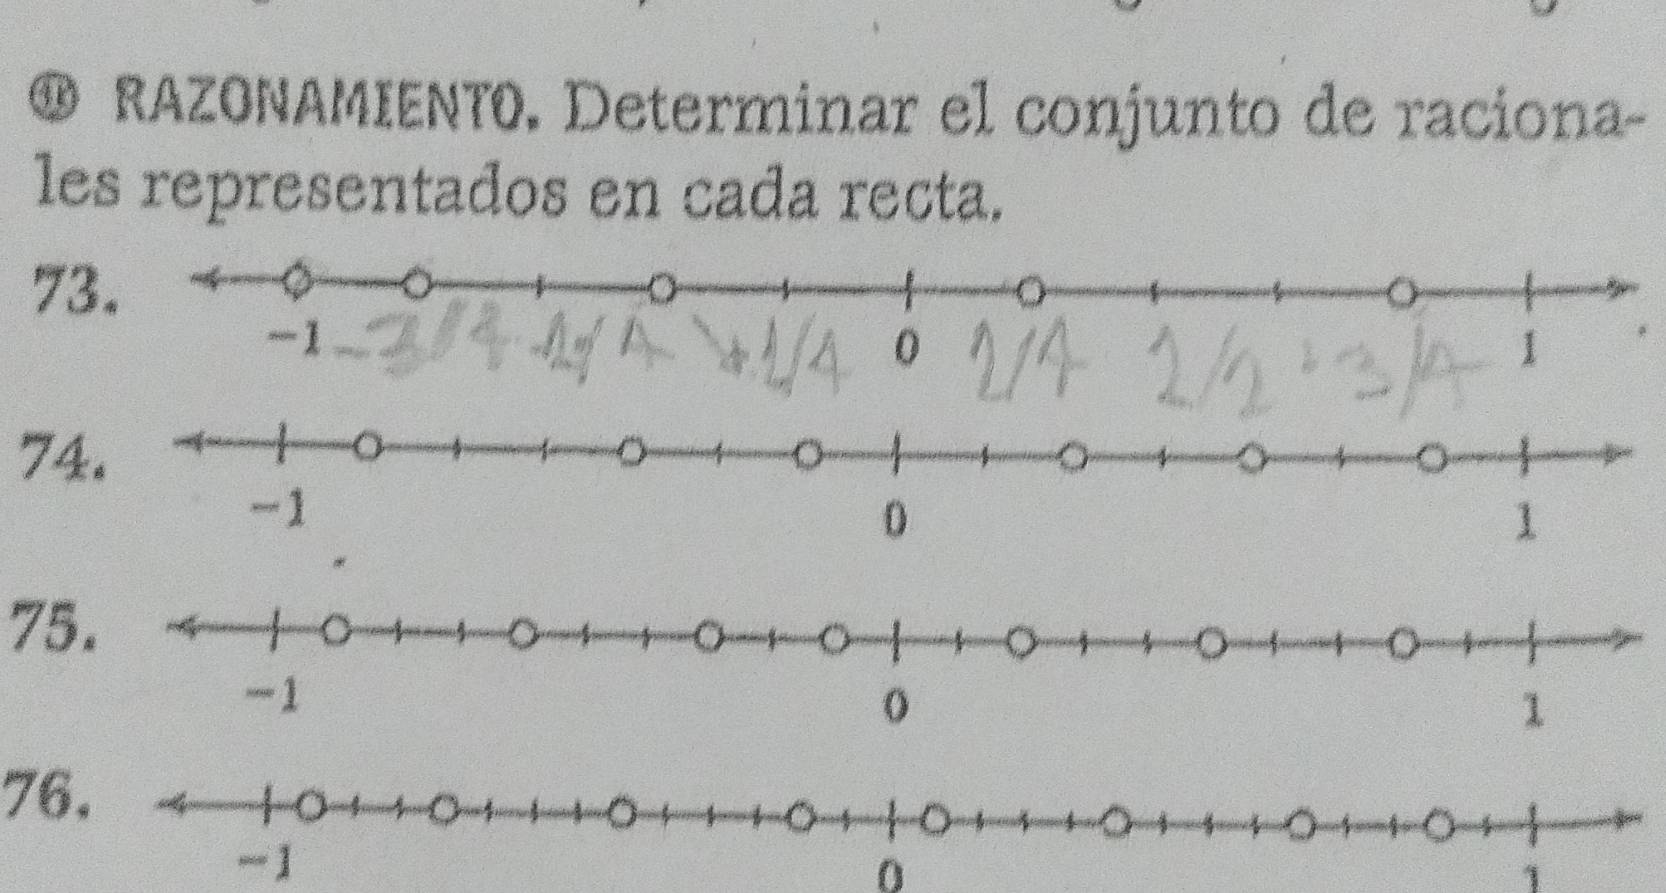 RAZONAMIENTO. Determinar el conjunto de raciona-
les representados en cada recta.
73.
-1 -3/4 1/4 0 1/4 1/2 3/4 1
74.
-1 0 1
75.
-1 0 1
76.
-1 0 1